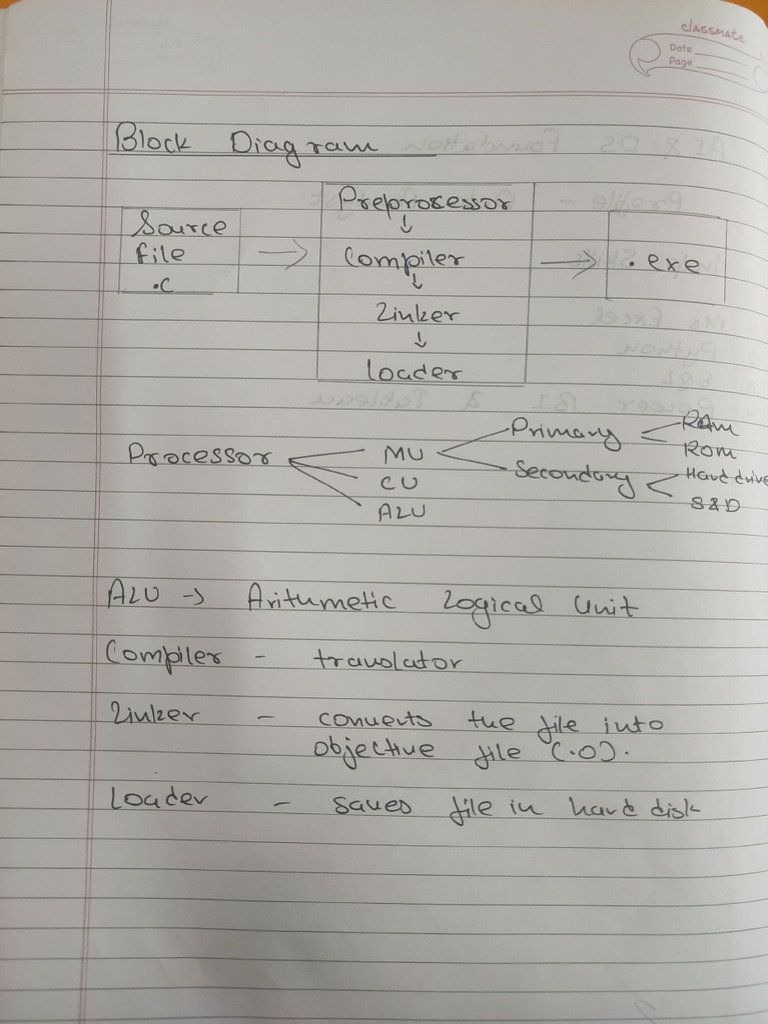 classmate
Date
Page
Block Diagram
Source
file
.c
Preprosessor
↓
Compiler
↓
Linker
↓
loader
.exe
Processor
MU
CU
ALU
Primary
RAM
ROM
Secondary
Hard drive
SSD
ALU → Aritumetic Logical Unit
Compiler - translator
Linker - converts the file into
objective file (.O).
Loader - saves file in hard disk